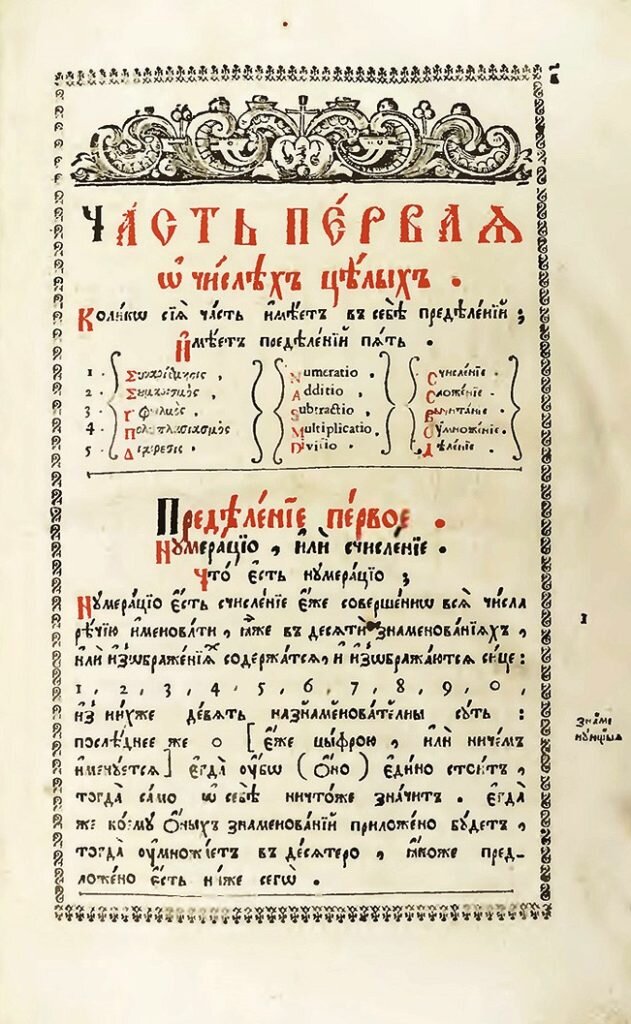 Ча́сть пе́рвая
ѡ҆ чи́слѣхъ цѣ́лыхъ .
Коли́кѡ сїѧ̀ ча́сть и҆мѣ́етъ въ себѣ̀ предѣле́нїй ;
И҆мѣ́етъ предѣле́нїй пѧ́ть .
1 · , Numeratio . Счисле́нїе .
2 · , Additio . Сложе́нїе .
3 · , Subtractio . Вычита́нїе .
4 · Πολυπλασιασμὸς Multiplicatio . Оумноже́нїе .
5 · Διαίρεσις . Divisio . Дѣле́нїе .
Предѣле́нїе пе́рвое .
Нꙋмера́цїо , и҆лѝ счисле́нїе .
Что́ є҆́сть нꙋмера́цїо ;
Нꙋмера́цїо є҆́сть счисле́нїе є҆́же соверше́ннѡ всѧ̑ чи́сла
рѣ́чїю и҆менова́ти , ꙗ҆̀же въ десѧтѝ знаменова́нїѧхъ ,
и҆лѝ и҆зѡбраже́нїѧ содержа́тсѧ , и҆ и҆зѡбража́ютсѧ си́це :
1 , 2 , 3 , 4 · 5 , 6 , 7 , 8 , 9 , 0 ,
и҆з̾ ни́хже де́вѧть назнаменова́телны сꙋ́ть :
послѣ́днее же 0 [ є҆́же цы́фрою , и҆лѝ ничѣ́мъ
и҆менꙋ́етсѧ ] є҆гда̀ оу҆́бѡ ( ѻ҆́но ) є҆ди́но стои́тъ ,
тогда̀ само̀ ѡ҆ себѣ̀ ничто́же зна́читъ . є҆гда̀
же ко́емꙋ ѻ҆́ныхъ знаменова́нїй приложе́но бꙋ́детъ ,
тогда̀ оу҆множа́етъ въ де́сѧтеро , ꙗ҆́коже пред-
ложе́но є҆́сть ни́же сегѡ̀ .
1
зна́ме